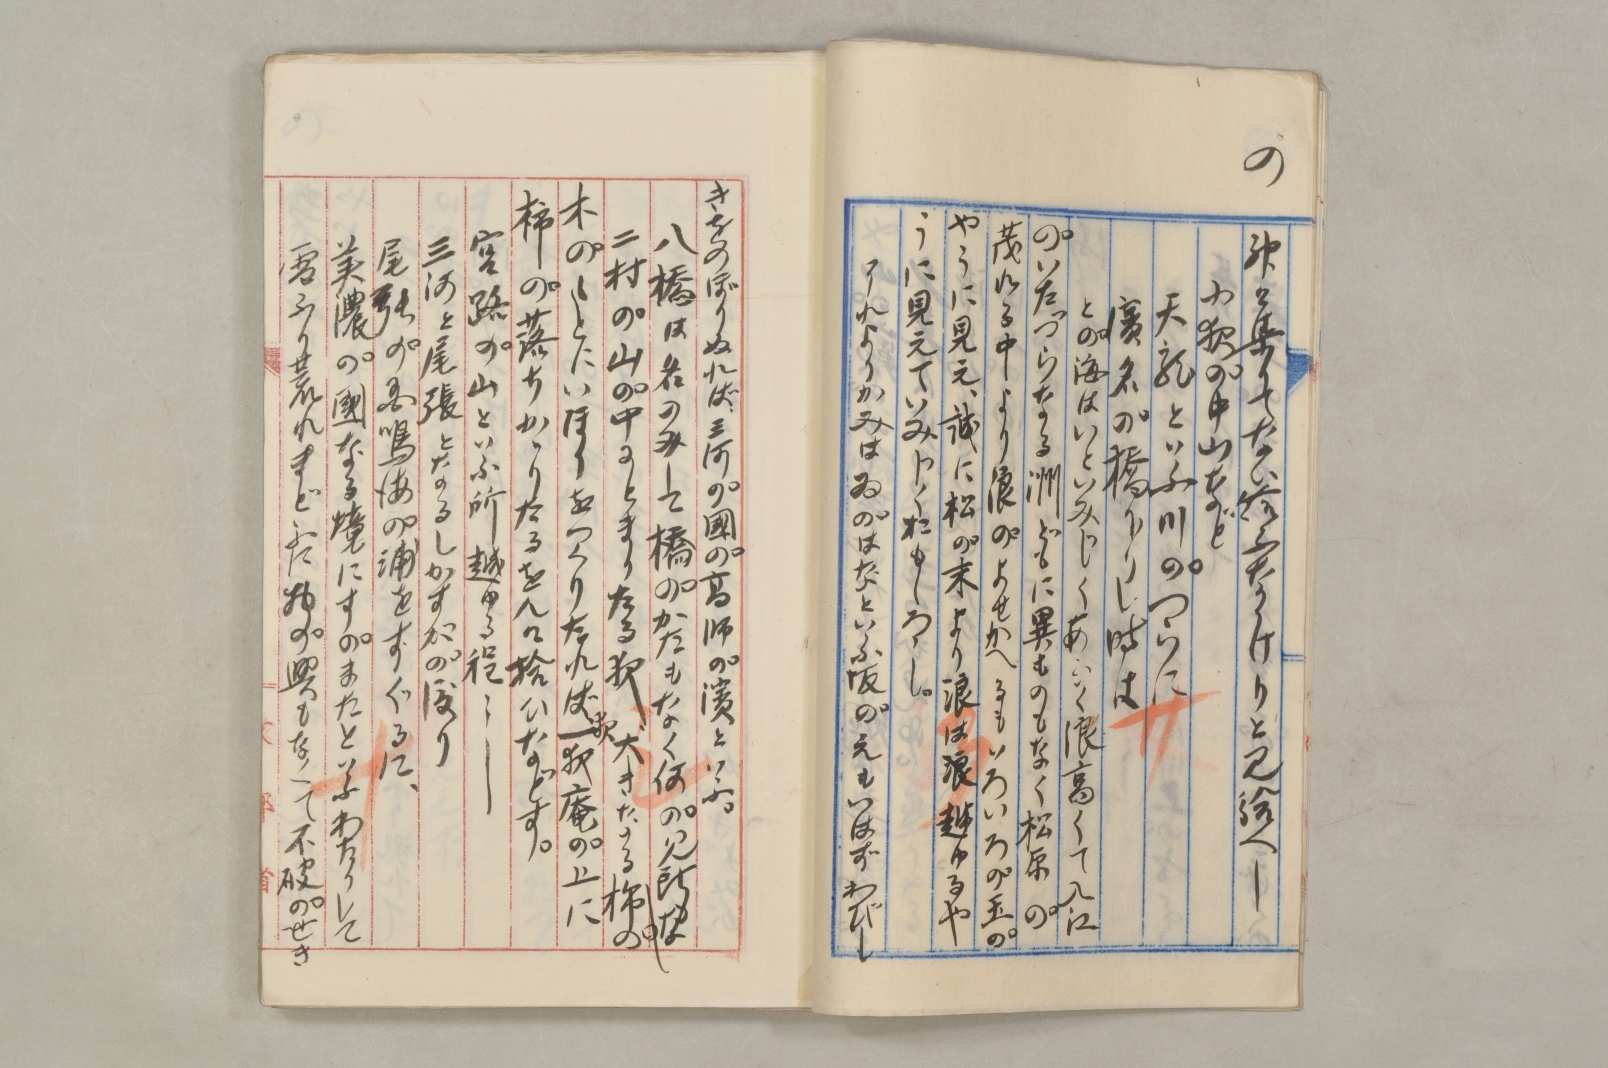 の
神と集りてたび給ふなりけりと見給へし
小夜の中山など
天龍といふ川のつらに
濱名の橋ありし時は
との海はいといみじくあしく浪高くて入江
のいたづらなる洲どもに異ものもなく松原の
茂れる中より浪のよせかへるもいろいろの玉の
やうに見え、誠に松の末より浪は浪越ゆるや
うに見えていみじくおもしろし。
それよりかみはゐのはなといふ坂のえもいはずわびし
きをのぼりぬれば、三河の國の高師の濱といふ。
八橋は名のみして橋のかたもなく何の見所もな
二村の山の中にとまりたる夜、大きなる柿の
木のしたにいほりをつくりたれば夜一夜庵の上に
柿の落ちかゝりたるを人々拾ひなどす。
宮路の山といふ所越ゆる程
三河と尾張となるしかすがの渡り
尾張の國鳴海の浦をすぐるに、
美濃の國なる境にすのまたといふわたりして
雪ふり荒れまどふに物の興もなくて不破のせき